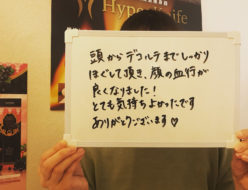 Hyper Knife
頭からデコルテまでしっかり
ほぐして頂き、顔の血行が
良くなりました！
とても気持ちよかったです
ありがとうございます♡